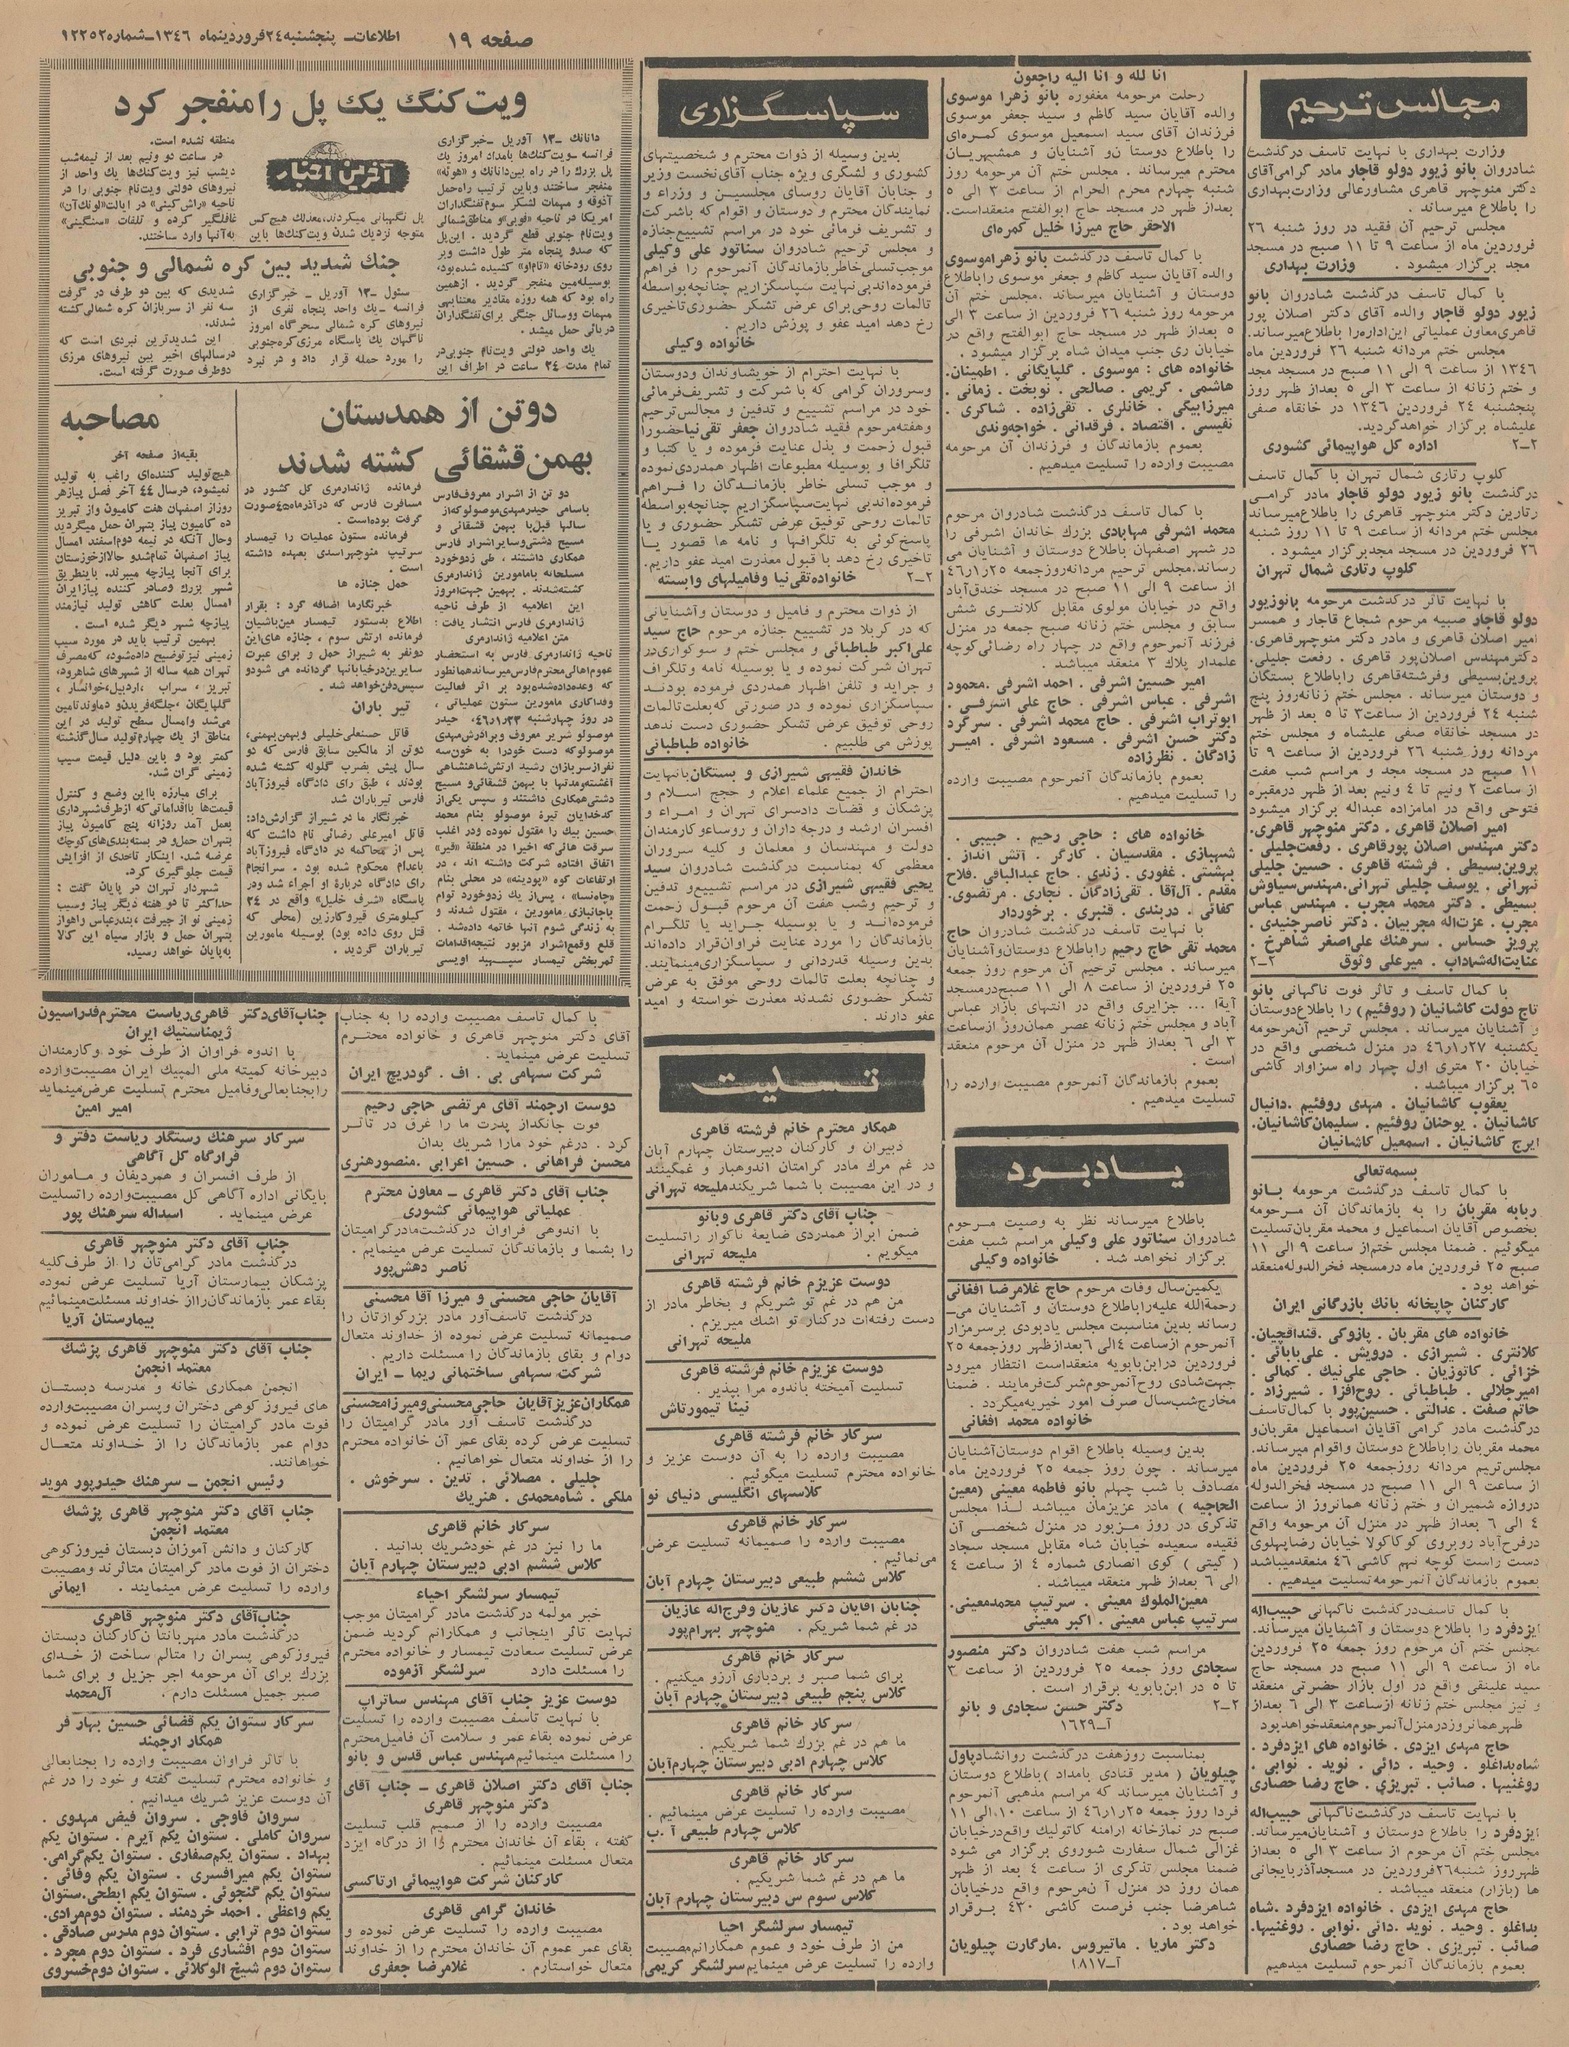 صفحه ۱۹
اطلاعات- پنجشنبه ۲۴ فروردینماه ۱۳۴۶-شماره ۱۲۲۵۲
مجالس ترحیم
وزارت بهداری با نهایت تاسف درگذشت
شادروان بانو زیور دولو قاجار مادر گرامی‌آقای
دکتر منوچهر قاهری مشاورعالی وزارت‌بهداری
را باطلاع میرساند .
مجلس ترحیم آن فقید در روز شنبه ۲۶
فروردین ماه از ساعت ۹ تا ۱۱ صبح در مسجد
مجد برگزار میشود . وزارت بهداری
با کمال تاسف درگذشت شادروان بانو
زیور دولو قاجار والده آقای دکتر اصلان پور
قاهری‌معاون عملیاتی این‌اداره‌را باطلاع‌میرساند.
مجلس ختم مردانه شنبه ۲۶ فروردین ماه
۱۳۴۶ از ساعت ۹ الی ۱۱ صبح در مسجد مجد
و ختم زنانه از ساعت ۳ الی ۵ بعداز ظهر روز
پنجشنبه ۲۴ فروردین ۱۳۴۶ در خانقاه صفی
علیشاه برگزار خواهدگردید.
۲-۲ اداره کل هواپیمائی کشوری
کلوپ رتاری شمال تهران با کمال تاسف
درگذشت بانو زیور دولو قاجار مادر گرامی
رتارین دکتر منوچهر قاهری را باطلاع‌میرساند
مجلس ختم مردانه از ساعت ۹ تا ۱۱ روز شنبه
۲۶ فروردین در مسجد مجدبرگزار میشود .
کلوپ رتاری شمال تهران
با نهایت تاثر درگذشت مرحومه بانوزیور
دولو قاجار صبیه مرحوم شجاع قاجار و همسر
امیر اصلان قاهری و مادر دکتر منوچهرقاهری.
دکترمهندس اصلان‌پور قاهری . رفعت جلیلی.
پروین‌بسیطی وفرشته‌قاهری راباطلاع بستگان
و دوستان میرساند . مجلس ختم زنانه‌روز پنج
شنبه ۲۴ فروردین از ساعت۳ تا ۵ بعد از ظهر
در مسجد خانقاه صفی علیشاه و مجلس ختم
مردانه روز شنبه ۲۶ فروردین از ساعت ۹ تا
۱۱ صبح در مسجد مجد و مراسم شب هفت
از ساعت ۲ ونیم تا ۴ ونیم بعد از ظهر درمقبره
فتوحی واقع در امامزاده عبداله برگزار میشود
امیر اصلان قاهری . دکتر منوچهر قاهری.
دکتر مهندس اصلان پورقاهری . رفعت‌جلیلی.
پروین‌بسیطی . فرشته قاهری . حسین جلیلی
تهرانی . یوسف جلیلی تهرانی.مهندس‌سیاوش
بسیطی . دکتر محمد مجرب. مهندس عباس
مجرب . عزت‌اله مجربیان. دکتر ناصرجنیدی.
پرویز حساس . سرهنک علی‌اصغر شاهرخ .
عنایت‌اله‌شهداب . میرعلی وثوق ۲-۲
با کمال تاسف و تاثر فوت ناگهانی بانو
تاج دولت کاشانیان ( روفئیم) را باطلاع‌دوستان
و آشنایان میرساند . مجلس ترحیم آن‌مرحومه
یکشنبه ۲۷ر۱ر۴۶ در منزل شخصی واقع در
خیابان ۲۰ متری اول چهار راه سزاوار کاشی
۶۵ برگزار میباشد .
یعقوب کاشانیان . مهدی روفئیم .دانیال
کاشانیان . یوحنان روفئیم . سلیمان‌کاشانیان.
ایرج کاشانیان . اسمعیل کاشانیان
بسمه‌تعالی
با کمال تاسف درگذشت مرحومه بانو
ربابه مقربان را به بازماندگان آن مرحومه
بخصوص آقایان اسماعیل و محمد مقربان‌تسلیت
میگوئیم . ضمنا مجلس ختم‌از ساعت ۹ الی ۱۱
صبح ۲۵ فروردین ماه درمسجد فخرالدوله‌منعقد
خواهد بود .
کارکنان چاپخانه بانک بازرگانی ایران
خانواده های مقربان . پازوکی .قنداقچیان.
کلانتری . شیرازی . درویش . علی‌بابائی .
خزائی . کاتوزیان . حاجی علی‌نیک . کمالی .
امیرجلالی . طباطبائی . روح‌افزا . شیرزاد .
حاتم صفت . عدالتی . حسین‌پور با کمال‌تاسف
درگذشت مادر گرامی آقایان اسماعیل مقربان‌و
محمد مقربان راباطلاع دوستان واقوام میرساند.
مجلس‌ترحیم مردانه روزجمعه ۲۵ فروردین ماه
از ساعت ۹ الی ۱۱ صبح در مسجد فخرالدوله
دروازه شمیران و ختم زنانه همانروز از ساعت
۴ الی ۶ بعداز ظهر در منزل آن مرحومه واقع
درفرح‌آباد روبروی کوکاکولا خیابان رضاپهلوی
دست راست کوچه نهم کاشی ۴۶ منعقدمیباشد
بعموم بازماندگان آنمرحومه‌تسلیت میدهیم .
با کمال تاسف‌درگذشت ناگهانی حبیب‌اله
ایزدفرد را باطلاع دوستان و آشنایان میرساند.
مجلس ختم آن مرحوم روز جمعه ۲۵ فروردین
ماه از ساعت ۹ الی ۱۱ صبح در مسجد حاج
سید علینقی واقع در اول بازار حضرتی منعقد
و نیز مجلس ختم زنانه ازساعت ۳ الی ۶ بعداز
ظهرهمانروزدرمنزل‌آنمرحوم‌منعقدخواهدبود
حاج مهدی ایزدی . خانواده های ایزدفرد .
شاه‌بداغلو . وحید . دائی . نوید . نوابی .
روغنیها . صائب . تبریزی . حاج رضا حصاری
با نهایت تاسف درگذشت‌ناگهانی حبیب‌اله
ایزدفرد را باطلاع دوستان و آشنایان‌میرساند.
مجلس ختم آن مرحوم از ساعت ۳ الی ۵ بعداز
ظهرروز شنبه۲۶ فروردین در مسجدآذربایجانی
ها (بازار) منعقد میباشد .
حاج مهدی ایزدی . خانواده ایزدفرد .شاه
بداغلو . وحید . نوید.دائی . نوابی . روغنیها.
صائب . تبریزی . حاج رضا حصاری
بعموم بازماندگان آنمرحوم تسلیت میدهیم
انا لله و انا الیه راجعون
رحلت مرحومه مغفوره بانو زهرا موسوی
والده آقایان سید کاظم و سید جعفر موسوی
فرزندان آقای سید اسمعیل موسوی کمره‌ای
را باطلاع دوستا ن‌و آشنایان و همشهریان
محترم میرساند . مجلس ختم آن مرحومه روز
شنبه چهارم محرم الحرام از ساعت ۳ الی ۵
بعداز ظهر در مسجد حاج ابوالفتح منعقداست.
الاحقر حاج میرزا خلیل کمره‌ای
با کمال تاسف درگذشت بانو زهراموسوی
والده آقایان سید کاظم و جعفر موسوی راباطلاع
دوستان و آشنایان میرساند .مجلس ختم آن
مرحومه روز شنبه ۲۶ فروردین از ساعت ۳ الی
۵ بعداز ظهر در مسجد حاج ابوالفتح واقع در
خیابان ری جنب میدان شاه برگزار میشود .
خانواده های : موسوی . گلپایگانی . اطمینان.
هاشمی . کریمی . صالحی . نوبخت . زمانی .
میرزابیگی . خانلری . تقی‌زاده . شاکری .
نفیسی . اقتصاد . فرقدانی . خواجه‌وندی
بعموم بازماندگان و فرزندان آن مرحومه
مصیبت وارده را تسلیت میدهیم .
با کمال تاسف درگذشت شادروان مرحوم
محمد اشرفی مهابادی بزرک خاندان اشرفی را
در شهر اصفهان باطلاع دوستان و آشنایان می
رساند.مجلس ترحیم مردانه‌روزجمعه ۲۵ر۱ر۴۶
از ساعت ۹ الی ۱۱ صبح در مسجد خندق‌آباد
واقع در خیابان مولوی مقابل کلانتری شش
سابق و مجلس ختم زنانه صبح جمعه در منزل
فرزند آنمرحوم واقع در چهار راه رضائی‌کوچه
علمدار پلاک ۳ منعقد میباشد .
امیر حسین اشرفی . احمد اشرفی .محمود
اشرفی . عباس اشرفی . حاج علی اشرفی .
ابوتراب اشرفی . حاج محمد اشرفی . سرگرد
دکتر حسن اشرفی . مسعود اشرفی . امیر
زادگان . نظرزاده
بعموم بازماندگان آنمرحوم مصیبت وارده
را تسلیت میدهیم .
خانواده های : حاجی رحیم . حبیبی .
شهبازی . مقدسیان . کارگر . آتش انداز .
بهشتی . غفوری . زندی . حاج عبدالباقی.فلاح
مقدم . آل‌آقا . تقی‌زادگان . نجاری . مرتضوی.
کفائی . دربندی . قنبری . برخوردار
با نهایت تاسف درگذشت شادروان حاج
محمد تقی حاج رحیم راباطلاع دوستان‌وآشنایان
میرساند . مجلس ترحیم آن مرحوم روز جمعه
۲۵ فروردین از ساعت ۸ الی ۱۱ صبح‌درمسجد
آیةا ... جزایری واقع در انتهای بازار عباس
آباد و مجلس ختم زنانه عصر همان‌روز ازساعت
۳ الی ۶ بعداز ظهر در منزل آن مرحوم منعقد
است .
بعموم بازماندگان آنمرحوم مصیبت وارده را
تسلیت میدهیم .
یادبود
باطلاع میرساند نظر به وصیت مرحوم
شادروان سناتور علی وکیلی مراسم شب هفت
برگزار نخواهد شد . خانواده وکیلی
یکمین‌سال وفات مرحوم حاج غلامرضا افغانی
رحمةالله علیه‌راباطلاع دوستان و آشنایان می-
رساند بدین مناسبت مجلس یادبودی برسرمزار
آنمرحوم ازساعت ۴ الی ۶ بعدازظهر روزجمعه ۲۵
فروردین درابن‌بابویه منعقداست انتظار میرود
جهت‌شادی روح‌آنمرحوم‌شرکت‌فرمایند . ضمنا
مخارج‌شب‌سال صرف امور خیریه‌میگردد .
خانواده محمد افغانی
بدین وسیله باطلاع اقوام دوستان‌آشنایان
میرساند . چون روز جمعه ۲۵ فروردین ماه
مصادف با شب چهلم بانو فاطمه معینی (معین
الحاجیه ) مادر عزیزمان میباشد لذا مجلس
تذکری در روز مزبور در منزل شخصی آن
فقیده سعیده خیابان شاه مقابل مسجد سجاد
( گیتی ) کوی انصاری شماره ۴ از ساعت ۴
الی ۶ بعداز ظهر منعقد میباشد .
معین‌الملوک معینی . سرتیپ محمدمعینی.
سرتیپ عباس معینی . اکبر معینی
مراسم شب هفت شادروان دکتر منصور
سجادی روز جمعه ۲۵ فروردین از ساعت ۳
تا ۵ در ابن‌بابویه برقرار است .
۲-۲ دکتر حسن سجادی و بانو
آ-۱۶۲۹
بمناسبت روزهفت درگذشت روانشادپاول
چیلویان ( مدیر قنادی بامداد )باطلاع دوستان
و آشنایان میرساند که مراسم مذهبی آنمرحوم
فردا روز جمعه ۲۵ر۱ر۴۶ از ساعت ۱۰ الی ۱۱
صبح در نمازخانه ارامنه کاتولیک واقع‌درخیابان
غزالی شمال سفارت شوروی برگزار می شود
ضمنا مجلس تذکری از ساعت ۴ بعد از ظهر
همان روز در منزل آ ن‌مرحوم واقع درخیابان
شاهرضا جنب فرصت کاشی ۴۳۰ برقرار
خواهد بود .
دکتر ماریا . ماتیروس .مارگارت چیلویان
آ-۱۸۱۷
سپاسگزاری
بدین وسیله از ذوات محترم و شخصیتهای
کشوری و لشگری ویژه جناب آقای‌نخست وزیر
و جنابان آقایان روسای مجلسین و وزراء و
نمایندگان محترم و دوستان و اقوام که باشرکت
و تشریف فرمائی خود در مراسم تشییع‌جنازه
و مجلس ترحیم شادروان سناتور علی وکیلی
موجب‌تسلی‌خاطر بازماندگان آنمرحوم را فراهم
فرموده‌اندبی نهایت سپاسگزاریم چنانچه‌بواسطه
تالمات روحی‌برای عرض تشکر حضوری‌تاخیری
رخ دهد امید عفو و پوزش داریم .
خانواده وکیلی
با نهایت احترام از خویشاوندان ودوستان
وسروران گرامی که با شرکت و تشریف‌فرمائی
خود در مراسم تشییع و تدفین و مجالس‌ترحیم
وهفته‌مرحوم فقید شادروان جعفر تقی‌نیاحضورا
قبول زحمت و بذل عنایت فرموده و یا کتبا و
تلگرافا و بوسیله مطبوعات اظهار همدردی‌نموده
و موجب تسلی خاطر بازماندگان را فراهم
فرموده‌اندبی نهایت‌سپاسگزاریم چنانچه‌بواسطه
تالمات روحی توفیق عرض تشکر حضوری و یا
پاسخ‌گوئی به تلگرافها و نامه ها قصور یا
تاخیری رخ دهد با قبول معذرت امید عفو داریم.
۲-۲ خانواده‌تقی‌نیا وفامیلهای وابسته
از ذوات محترم و فامیل و دوستان وآشنایانی
که در کربلا در تشییع جنازه مرحوم حاج سید
علی‌اکبر طباطبائی و مجلس ختم و سوگواری‌در
تهران شرکت نموده و یا بوسیله نامه وتلگراف
و جراید و تلفن اظهار همدردی فرموده بودند
سپاسگزاری نموده و در صورتی که‌بعلت‌تالمات
روحی توفیق عرض تشکر حضوری دست ندهد
پوزش می طلبیم . خانواده طباطبائی
خاندان فقیهی شیرازی و بستگان بانهایت
احترام از جمیع علماء اعلام و حجج اسلام و
پزشکان و قضات دادسرای تهران و امراء و
افسران ارشد و درجه داران و روساءو کارمندان
دولت و مهندسان و معلمان و کلیه سروران
معظمی که بمناسبت درگذشت شادروان سید
یحیی فقیهی شیرازی در مراسم تشییع‌و تدفین
و ترحیم وشب هفت آن مرحوم قبول زحمت
فرموده‌اند و یا بوسیله جراید یا تلگرام
بازماندگان را مورد عنایت فراوان‌قرار داده‌اند
بدین وسیله قدردانی و سپاسگزاری‌مینمایند.
و چنانچه بعلت تالمات روحی موفق به عرض
تشکر حضوری نشدند معذرت خواسته و امید
عفو دارند .
تسلیت
همکار محترم خانم فرشته قاهری
دبیران و کارکنان دبیرستان چهارم آبان
در غم مرک مادر گرامتان اندوهبار و غمگینند
و در این مصیبت با شما شریکندملیحه تهرانی
جناب آقای دکتر قاهری وبانو
ضمن ابراز همدردی ضایعه ناگوار راتسلیت
میگویم . ملیحه تهرانی
دوست عزیزم خانم فرشته قاهری
من هم در غم تو شریکم و بخاطر مادر از
دست رفته‌ات درکنار تو اشک میریزم .
ملیحه تهرانی
دوست عزیزم خانم فرشته قاهری
تسلیت آمیخته باندوه مرا بپذیر .
نینا تیمورتاش
سرکار خانم فرشته قاهری
مصیبت وارده را به آن دوست عزیز و
خانواده محترم تسلیت میگوئیم .
کلاسهای انگلیسی دنیای نو
سرکار خانم قاهری
مصیبت وارده را صمیمانه تسلیت عرض
می‌نمائیم .
کلاس ششم طبیعی دبیرستان چهارم آبان
جنابان آقایان دکتر عازیان وفرج‌اله عازیان
در غم شما شریکم . منوچهر بهرام‌پور
سرکار خانم قاهری
برای شما صبر و بردباری آرزو میکنیم .
کلاس پنجم طبیعی دبیرستان چهارم آبان
سرکار خانم قاهری
ما هم در غم بزرک شما شریکیم .
کلاس چهارم ادبی دبیرستان چهارم‌آبان
سرکار خانم قاهری
مصیبت وارده را تسلیت عرض مینمائیم .
کلاس چهارم طبیعی آ .ب
سرکار خانم قاهری
ما هم در غم شما شریکیم .
کلاس سوم س دبیرستان چهارم آبان
تیمسار سرلشگر احیا
من از طرف خود و عموم همکارانم‌مصیبت
وارده را تسلیت عرض مینمایم‌سرلشگر کریمی
ویت کنگ یک پل رامنفجر کرد
آخرین اخبار
دانانک -۱۳ آوریل -خبرگزاری
فرانسه -ویت‌کنگ‌ها بامداد امروز یک
پل بزرک را در راه بین‌دانانک و «هوئه»
منفجر ساختند وباین ترتیب راه‌حمل
آذوقه و مهمات لشگر سوم‌تفنگداران
امریکا در ناحیه «فوبی» و مناطق‌شمالی
ویت‌نام جنوبی قطع گردید . این‌پل
که صدو پنجاه متر طول داشت وبر
روی رودخانه «نام‌او» کشیده شده‌بود،
بوسیله‌مین منفجر گردید . ازهمین
راه بود که همه روزه مقادیر معتنابهی
مهمات ووسائل جنگی برای‌تفنگداران
دریائی حمل میشد .
یک واحد دولتی ویت‌نام جنوبی‌در
تمام مدت ۲۴ ساعت در اطراف این
پل نگهبانی میکردند،معذلک هیچ‌کس
متوجه نزدیک شدن ویت‌کنگ‌ها باین
منطقه نشده است.
در ساعت دو ونیم بعد از نیمه‌شب
دیشب نیز ویت‌کنگ‌ها یک واحد از
نیروهای دولتی ویت‌نام جنوبی را در
ناحیه «راش‌کینی» در ایالت«لونک‌آن»
غافلگیر کرده و تلفات «سنگینی»
به‌آنها وارد ساختند.
جنک شدید بین کره شمالی و جنوبی
سئول -۱۳ آوریل - خبرگزاری
فرانسه -یک واحد پنجاه نفری از
نیروهای کره شمالی سحرگاه امروز
ناگهان یک پاسگاه مرزی‌کره‌جنوبی
را مورد حمله قرار داد و در نبرد
شدیدی که بین دو طرف در گرفت
سه نفر از سربازان کره شمالی‌کشته
شدند.
این شدیدترین نبردی است که
درسالهای اخیر بین نیروهای مرزی
دوطرف صورت گرفته است.
دوتن از همدستان
بهمن قشقائی کشته شدند
دو تن از اشرار معروف‌فارس
باسامی حیدرمهدی‌موصولوکه‌از
سالها قبل‌با بهمن قشقائی و
مسیح دشتی‌وسایراشرار فارس
همکاری داشتند ، طی زدوخورد
مسلحانه بامامورین ژاندارمری
کشته‌شدند . بهمین جهت‌امروز
این اعلامیه از طرف ناحیه
ژاندارمری فارس انتشار یافت :
متن اعلامیه ژاندارمری
ناحیه ژاندارمری فارس به استحضار
عموم‌اهالی محترم‌فارس‌میرساندهمانطور
که وعده‌داده‌شده‌بود بر اثر فعالیت
وفداکاری مامورین ستون عملیاتی ،
در روز چهارشنبه ۲۳ر۱ر۴۶، حیدر
موصولو شریر معروف وبرادرش‌مهدی
موصولوکه دست خودرا به خون‌سه
نفرازسربازان رشید ارتش‌شاهنشاهی
آغشته‌ومدتها با بهمن قشقائی‌و مسیح
دشتی‌همکاری داشتند و سپس یکی‌از
کدخدایان تیره موصولو بنام محمد
حسین بیک را مقتول نموده ودر اغلب
سرقت هائی‌که اخیرا در منطقه «قیر»
اتفاق افتاده شرکت داشته اند ، در
ارتفاعات کوه «پودینه» در محلی بنام
«چاه‌نسا» ، پس‌از یک زدوخورد توام
باجانبازی مامورین، مقتول شدند و
به زندگی شوم آنها خاتمه داده‌شد .
قلع وقمع‌اشرار مزبور نتیجه‌اقدامات
ثمربخش تیمسار سپهبد اویسی
فرمانده ژاندارمری کل کشور در
مسافرت فارس که درآذرماه۴۵صورت
گرفت بوده‌است.
فرمانده ستون عملیات را تیمسار
سرتیپ منوچهراسدی بعهده داشته
است .
حمل جنازه ها
خبرنگارما اضافه کرد : بقرار
اطلاع بدستور تیمسار مین‌باشیان
فرمانده ارتش سوم ، جنازه های‌این
دونفر به شیراز حمل و برای عبرت
سایرین‌درخیابانها گردانده می شودو
سپس‌دفن‌خواهد شد .
تیر باران
قاتل حسنعلی‌خلیلی وبهمن‌بهمنی،
دوتن از مالکین سابق فارس که دو
سال پیش بضرب گلوله کشته شده
بودند ، طبق رای دادگاه فیروزآباد
فارس تیرباران شد
خبرنگار ما در شیراز گزارش‌داد:
قاتل امیرعلی رضائی نام داشت که
پس از محاکمه در دادگاه فیروزآباد
باعدام محکوم شده بود . سرانجام
رای دادگاه درباره او اجراء شدو در
پاسگاه «شرف خلیل» واقع در ۲۴
کیلومتری فیروکارزین (محلی که
قتل روی داده بود) بوسیله مامورین
تیرباران گردید .
مصاحبه
بقیه‌از صفحه آخر
هیچ‌تولید کننده‌ای راغب به تولید
نمیشود، درسال ۴۴ آخر فصل پیازهر
روزاز اصفهان هفت کامیون واز تبریز
ده کامیون پیاز بتهران حمل میگردید
وحال آنکه در نیمه دوم‌اسفند امسال
پیاز اصفهان تمام‌شدو حالاازخوزستان
برای آنجا پیازچه میبرند. باینطریق
شهر بزرک وصادر کننده پیازایران
امسال بعلت کاهش تولید نیازمند
پیازچه شهر دیگر شده است .
بهمین ترتیب باید در مورد سیب
زمینی نیزتوضیح داده‌شود، که‌مصرف
تهران همه ساله از شهرهای شاهرود،
تبریز ، سراب ، اردبیل،خوانسار ،
گلپایگان ،جلگه‌فریدن‌و دماوندتامین
می‌شد وامسال سطح تولید در این
مناطق از یک چهارم‌تولید سال‌گذشته
کمتر بود و باین دلیل قیمت سیب
زمینی گران شد.
برای مبارزه بااین وضع و کنترل
قیمت‌ها بااقداماتی‌که ازطرف‌شهرداری
بعمل آمد روزانه پنج کامیون پیاز
بتهران حمل‌و در بسته‌بندی‌های‌کوچک
عرضه شد، اینکار تاحدی از افزایش
قیمت جلوگیری کرد.
شهردار تهران در پایان گفت :
حداکثر تا دو هفته دیگر پیاز وسیب
زمینی نو از جیرفت ،بندرعباس واهواز
بتهران حمل و بازار سیاه این کالا
به‌پایان خواهد رسید.
با کمال تاسف مصیبت وارده را به جناب
آقای دکتر منوچهر قاهری و خانواده محترم
تسلیت عرض مینماید .
شرکت سهامی بی . اف . گودریچ ایران
دوست ارجمند آقای مرتضی حاجی رحیم
فوت جانگداز پدرت ما را غرق در تاثر
کرد . درغم خود مارا شریک بدان
محسن فراهانی . حسین اعرابی .منصورهنری
جناب آقای دکتر قاهری - معاون محترم
عملیاتی هواپیمائی کشوری
با اندوهی فراوان درگذشت‌مادرگرامیتان
را بشما و بازماندگان تسلیت عرض مینمایم .
ناصر دهش‌پور
آقایان حاجی محسنی و میرزا آقا محسنی
درگذشت تاسف‌آور مادر بزرگوارتان را
صمیمانه تسلیت عرض نموده از خداوند متعال
دوام و بقای بازماندگان را مسئلت داریم .
شرکت سهامی ساختمانی ریما - ایران
همکاران‌عزیزآقایان حاجی‌محسنی‌ومیرزامحسنی
درگذشت تاسف آور مادر گرامیتان را
تسلیت عرض کرده بقای عمر آن خانواده محترم
را از خداوند متعال خواهانیم .
جلیلی . مصلائی . تدین . سرخوش .
ملکی . شاه‌محمدی . هنریک
سرکار خانم قاهری
ما را نیز در غم خودشریک بدانید .
کلاس ششم ادبی دبیرستان چهارم آبان
تیمسار سرلشگر احیاء
خبر مولمه درگذشت مادر گرامیتان موجب
نهایت تاثر اینجانب و همکارانم گردید ضمن
عرض تسلیت سعادت تیمسار و خانواده محترم
را مسئلت دارد سرلشگر آزموده
دوست عزیز جناب آقای مهندس ساتراپ
با نهایت تاسف مصیبت وارده را تسلیت
عرض نموده بقاء عمر و سلامت آن فامیل‌محترم
را مسئلت مینمائیم‌مهندس عباس قدس و بانو
جناب آقای دکتر اصلان قاهری - جناب آقای
دکتر منوچهر قاهری
مصیبت وارده را از صمیم قلب تسلیت
گفته ، بقاء آن خاندان محترم را از درگاه ایزد
متعال مسئلت مینمائیم .
کارکنان شرکت هواپیمائی ارتاکسی
خاندان گرامی قاهری
مصیبت وارده را تسلیت عرض نموده و
بقای عمر عموم آن خاندان محترم را از خداوند
متعال خواستارم . غلامرضا جعفری
جناب‌آقای‌دکتر قاهری‌ریاست محترم‌فدراسیون
ژیمناستیک ایران
با اندوه فراوان از طرف خود وکارمندان
دبیرخانه کمیته ملی المپیک ایران مصیبت‌وارده
رابجنابعالی‌وفامیل محترم تسلیت عرض‌مینماید
امیر امین
سرکار سرهنک رستگار ریاست دفتر و
قرارگاه کل آگاهی
از طرف افسران و همردیفان و ماموران
بایگانی اداره آگاهی کل مصیبت‌وارده راتسلیت
عرض مینماید . اسداله سرهنک پور
جناب آقای دکتر منوچهر قاهری
درگذشت مادر گرامی‌تان را از طرف‌کلیه
پزشکان بیمارستان آریا تسلیت عرض نموده
بقاء عمر بازماندگان‌رااز خداوند مسئلت‌مینمائیم
بیمارستان آریا
جناب آقای دکتر منوچهر قاهری پزشک
معتمد انجمن
انجمن همکاری خانه و مدرسه دبستان
های فیروز کوهی دختران وپسران مصیبت‌وارده
فوت مادر گرامیتان را تسلیت عرض نموده و
دوام عمر بازماندگان را از خداوند متعال
خواهانند.
رئیس انجمن - سرهنک حیدرپور موید
جناب آقای دکتر منوچهر قاهری پزشک
معتمد انجمن
کارکنان و دانش آموزان دبستان فیروزکوهی
دختران از فوت مادر گرامیتان متاثرند ومصیبت
وارده را تسلیت عرض مینمایند . ایمانی
جناب‌آقای دکتر منوچهر قاهری
درگذشت مادر مهربانتا ن‌کارکنان دبستان
فیروزکوهی پسران را متالم ساخت از خدای
بزرک برای آن مرحومه اجر جزیل و برای شما
صبر جمیل مسئلت دارم . آل‌محمد
سرکار ستوان یکم قضائی حسین بهار فر
همکار ارجمند
با تاثر فراوان مصیبت وارده را بجنابعالی
و خانواده محترم تسلیت گفته و خود را در غم
آن دوست عزیز شریک میدانیم .
سروان فاوجی . سروان فیض مهدوی .
سروان کاملی . ستوان یکم آیرم . ستوان یکم
بهداد . ستوان یکم‌صفاری . ستوان یکم‌گرامی.
ستوان یکم میرافسری . ستوان یکم وفائی .
ستوان یکم گنجوئی . ستوان یکم ابطحی.ستوان
یکم واعظی . احمد خردمند . ستوان دوم‌مرادی.
ستوان دوم ترابی . ستوان دوم مدرس صادقی .
ستوان دوم افشاری فرد . ستوان دوم مجرد .
ستوان دوم شیخ الوکلائی . ستوان دوم‌خسروی